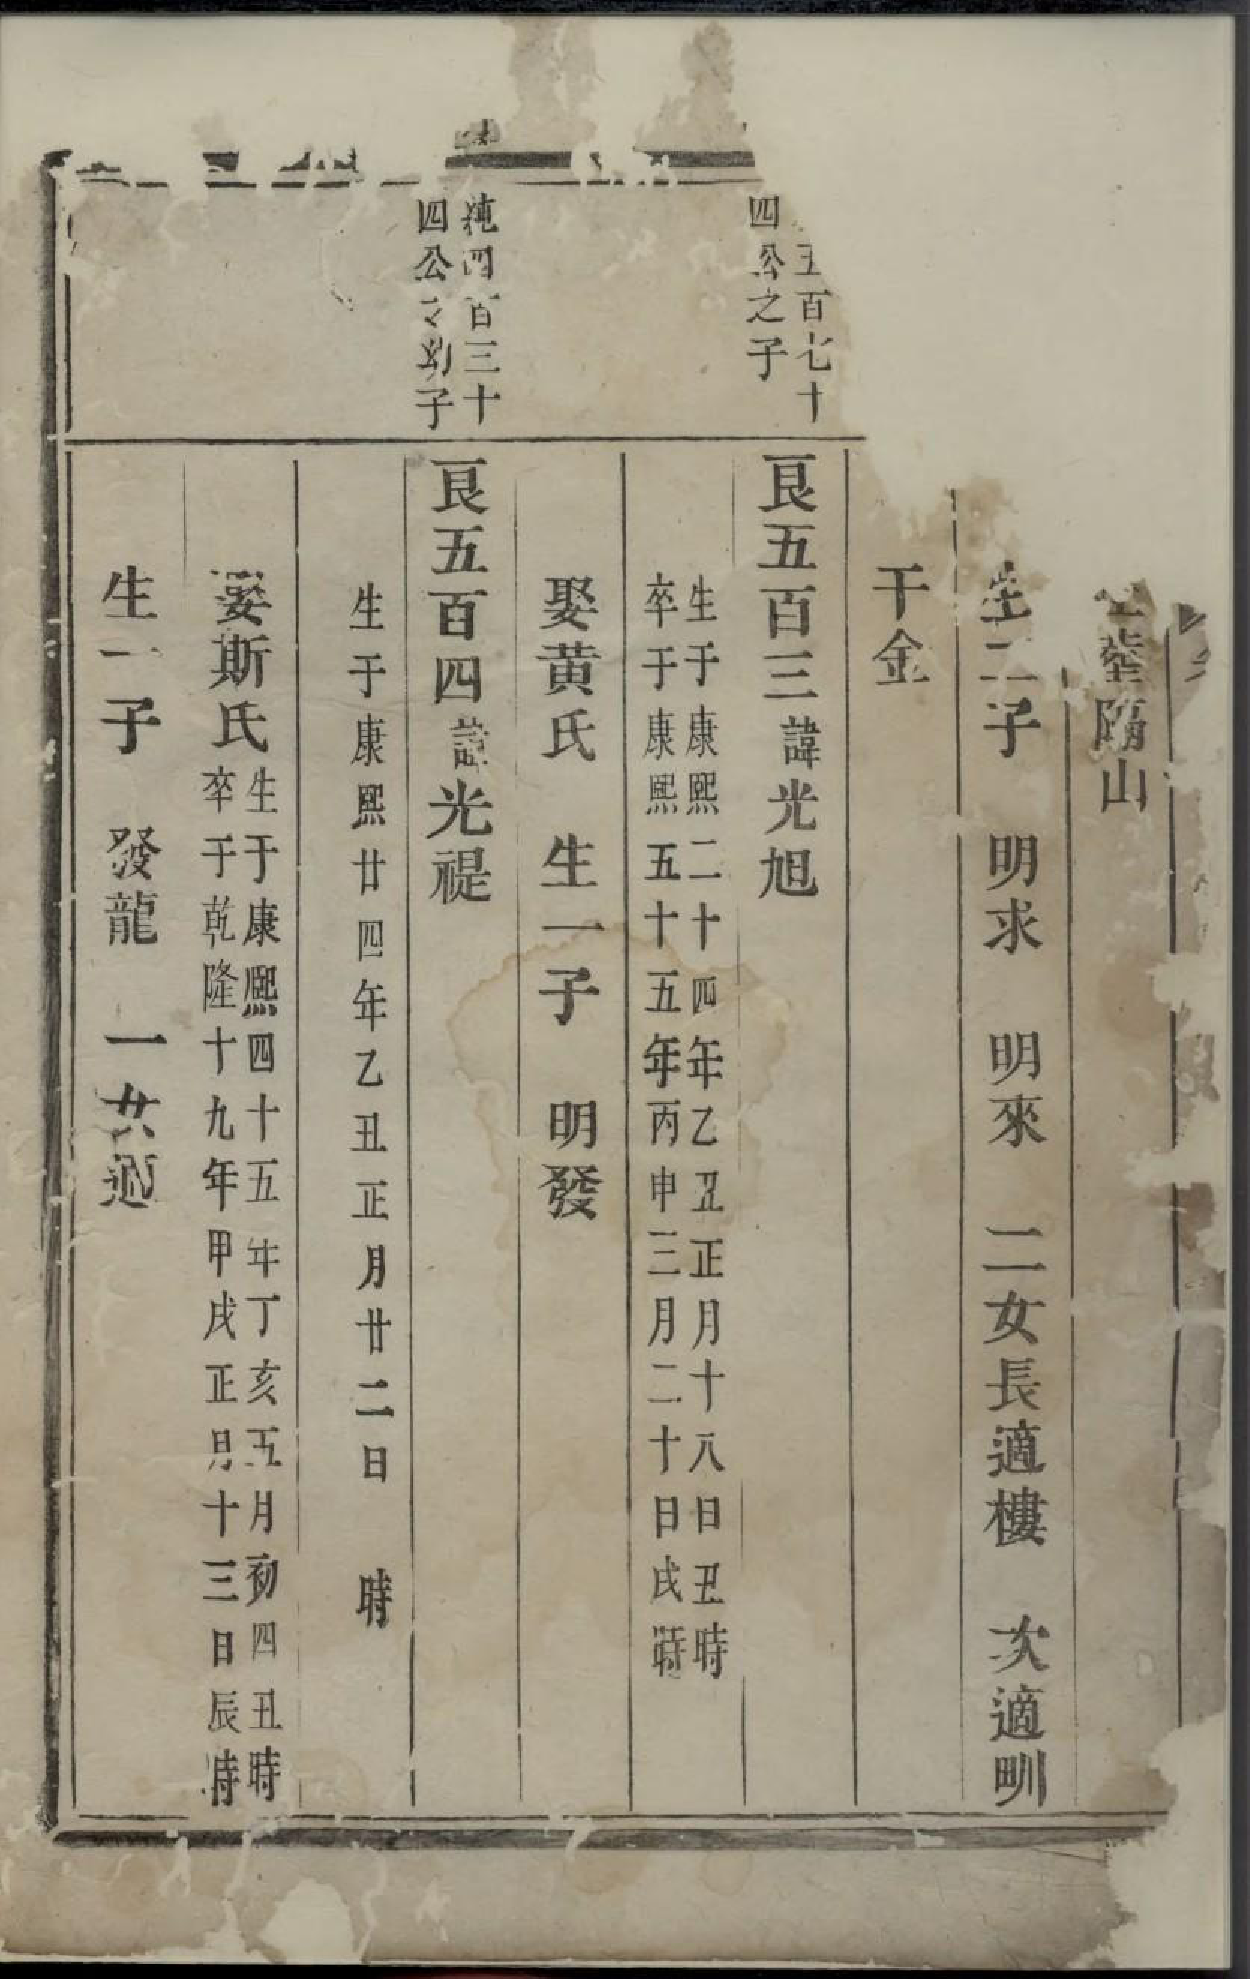 隔山
生二子 明求 明來 二女長適樓 次適甽
干金
五百七十
四公之子
艮五百三諱光旭
生于康熙二十四年乙丑正月十八日丑時
卒于康熙五十五年丙申三月二十日戌時
娶黃氏 生一子 明發
純四百三十
四公之幼子
艮五百四諱光禔
生于康熙廿四年乙丑正月廿二日 時
娶斯氏
生于康熙四十五年丁亥五月初四丑時
卒于乾隆十九年甲戌正月十三日辰時
生一子 發龍 一女適